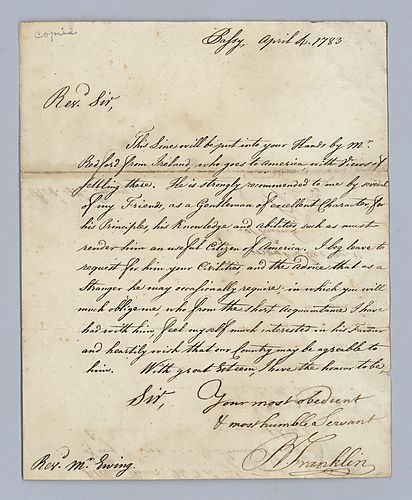 copied
Passy, April 4. 1783
Revd Sir,
This Line will be put into your Hands by Mr
Redford from Ireland, who goes to America with Views of
settling there. He is strongly recommended to me by several
of my Friends, as a Gentleman of excellent Character for
his Principles, his Knowledge and Abilities, such as must
render him an useful Citizen of America. I beg leave to
request for him your Civilities and the Advice that as a
Stranger he may occasionally require; in which you will
much oblige me, who from the short Acquaintance I have
had with him feel myself much interested in his Favour
and heartily wish that our Country may be agreable to
him. With great Esteem I have the honour to be,
Sir,
Your most obedient
& most humble Servant
B Franklin
Revd Mr Ewing.